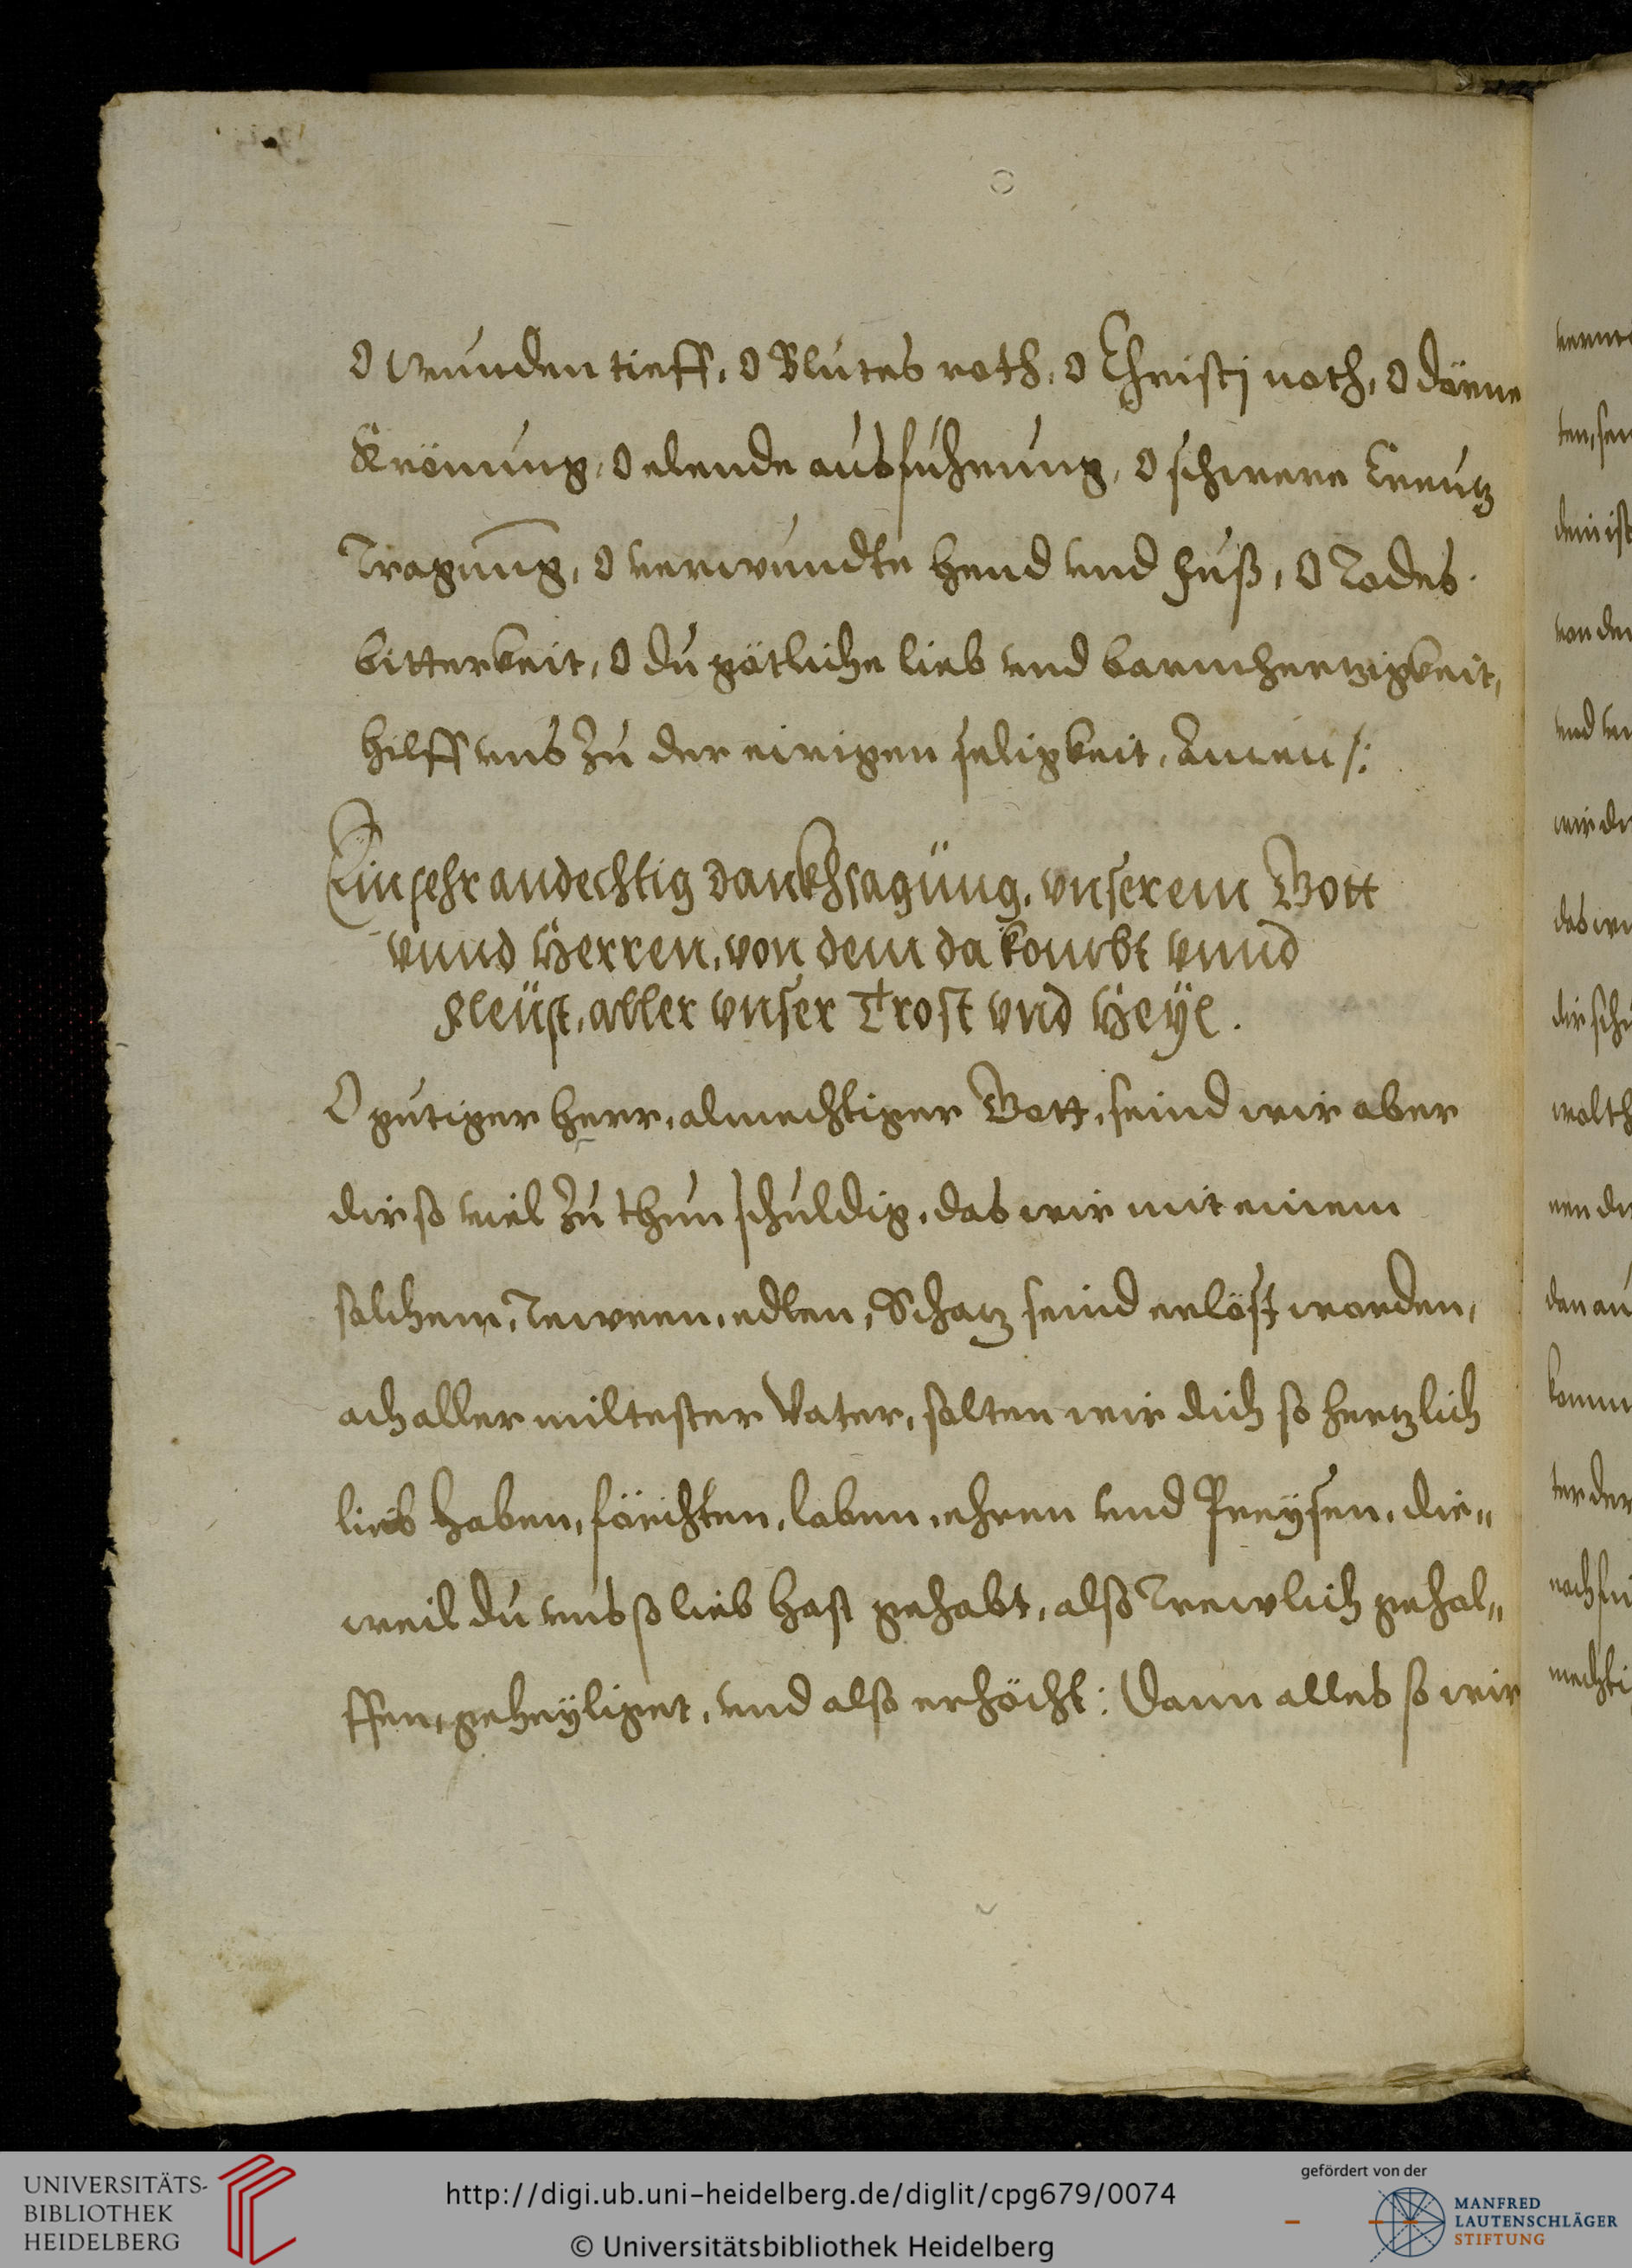 O wunden tieff, O Blutes roth, O Christj noth, O dörne
Krönung, O elende ausfuhrung, O schwere Creutz
Tragung, O verwundte hend vnd fuß, O Todes
bitterkeit, O du götliche lieb vnd barmhertzigkeit,
hilff vns zu der ewigen seligkeit, Amen /:
Ein sehr andechtig danckhsagüng, vnserem Gott
vnnd Herren, von dem da kombt vnnd
fleüst, aller vnser Trost vnd Heÿl.
O gutiger herr, almechtiger Gott, seind wir aber
dir so viel zu thun schuldig, das wir mit einem
solchem, Tewren, edlen, Schatz seind erlöst worden,
ach aller miltester Vater, solten wir dich so hertzlich
lieb haben, förchten, loben, ehren vnd Preÿsen, die„
weil du vns so lieb hast gehabt, also Trewlich gehol„
ffen, geheÿliget, vnd also erhöcht: Dann alles so wir
ten,
dein ist
von der
vnd
wir
das
dir
nen
komm
ter der
noch
mechti
UNIVERSITÄTS-
BIBLIOTHEK
HEIDELBERG
http://digi.ub.uni-heidelberg.de/diglit/cpg679/0074
© Universitätsbibliothek Heidelberg
gefördert von der
MANFRED
LAUTENSCHLÄGER
STIFTUNG